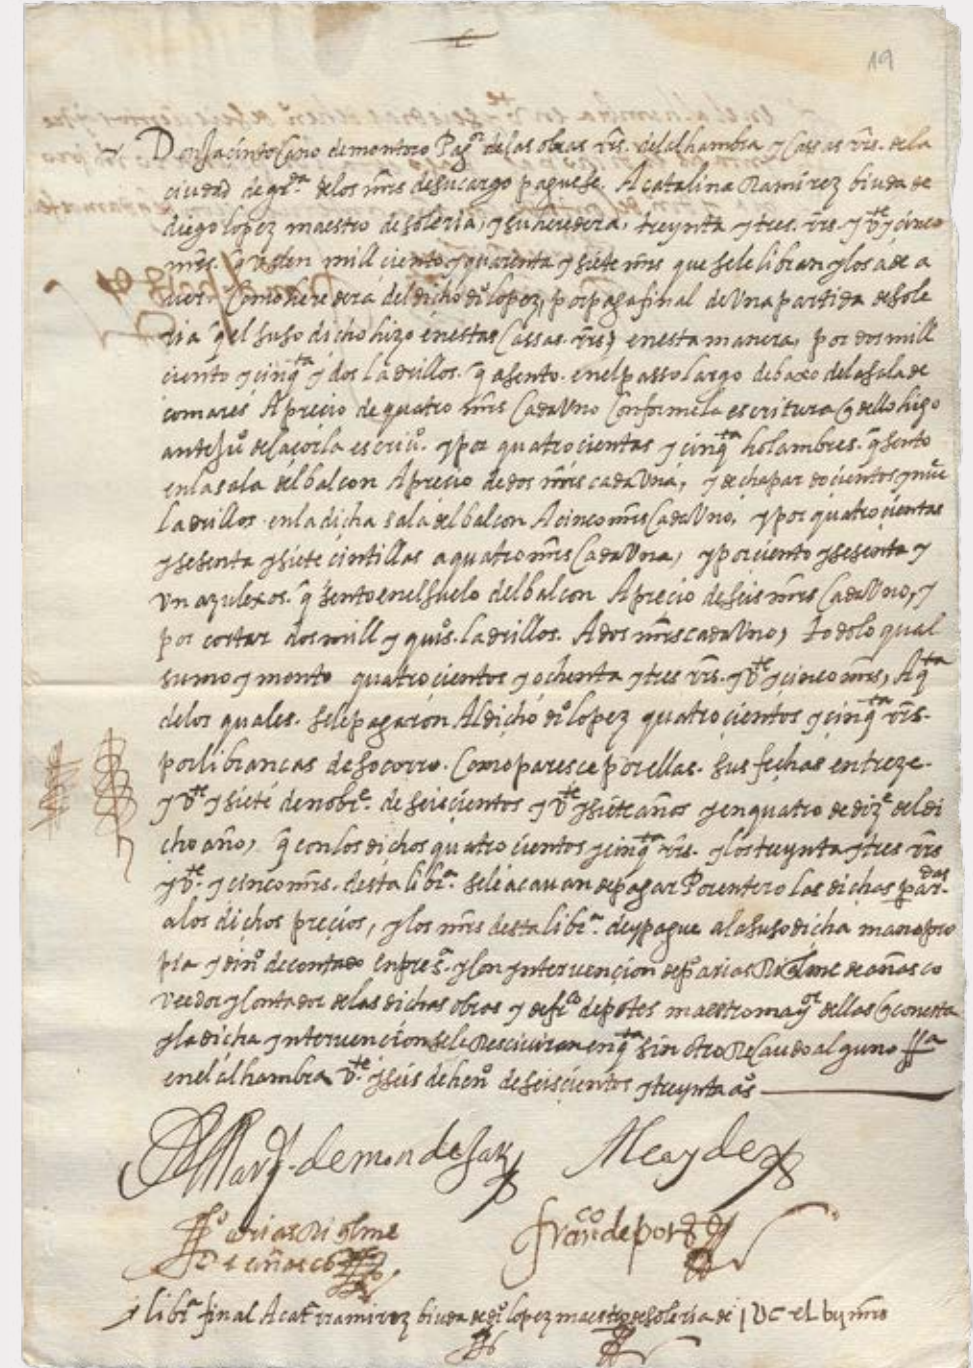 19
Don Jacinto Caro de montoro Pagor de las obras rrs. del alhambra y Cassas rrs. de la
ciudad de grda de los mrs de su cargo paguese. A catalina Ramirez biuda de
diego lopez maestro de soleria, y su heredera, treynta y tres. rrs. y Vte y cinco
mrs. q valen mill ciento y quarenta y siete mrs que se le libran y los a de a
ver Como heredera del dicho do lopez, por paga final de Una partida de sole
ria q el suso dicho hizo en estas Cassas rrs, en esta manera, por dos mill
ciento y cinqta y dos ladrillos. q asento. en el passo largo debaxo de la sala de
comares A precio de quatro mrs Cada Uno Conforme la escritura q dello hizo
ante Ju de escriuo. y por quatrocientas y cinqta holambres. q sento
en la sala del balcon A precio de dos mrs cada Una, y de chapar docientos y nue
ladrillos en la dicha sala del balcon A cinco mrs Cada Uno, y por quatrocientas
y sesenta y siete cintillas a quatro mrs Cada Una, y por ciento y sesenta y
Un azulexos. q sento en el suelo del balcon A precio de seis mrs Cada Uno, y
por cortar dos mill y quis. ladrillos. A dos mrs cada Uno, todo lo qual
sumo y monto quatrocientos y ochenta y tres rrs. y Vte y cinco mrs, A qta
de los quales. se le pagaron Al dicho do lopez quatrocientos y cinqta rrs.
por libranças de socorro. Como paresce por ellas. sus fechas en treze.
y Vte y siete de nobre. de seiscientos y Vte y siete años y en quatro de dize del di
cho año, q con los dichos quatrocientos y cinqta rrs. y los treynta y tres rrs
y Vte. y cinco mrs. desta libra. se le acauan de pagar Por entero las dichas pardas.
a los dichos precios, y los mrs desta libra. de y pague a la suso dicha mano pro
pia y dino de contado en presa. y Con yntervencion de po arias Riquelme de añasco
veedor y Contador de las dichas obras y de fco de potes maestro mayor dellas q con esta
y la dicha yntervencion se le Resciuiran en qta sin otro Recaudo alguno ffa
en el alhambra Vte. y seis de heno de seiscientos y treynta as
El Marqs. de mondejar
Po arias Riqlme
De añasco
franco de potes
libra final A cata rramirez biuda de do lopez maestro de soleria de I UC xL bij mrs